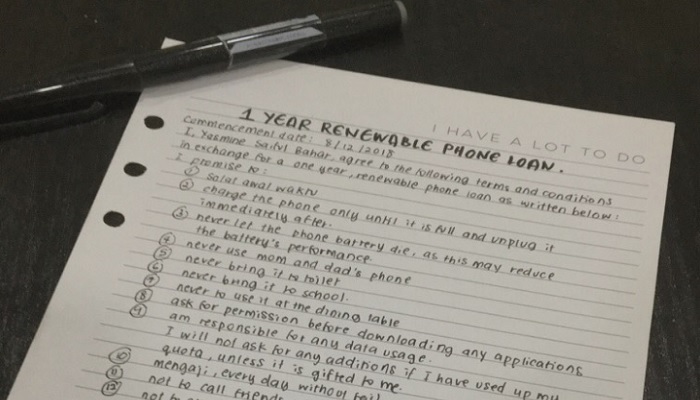 I HAVE A LOT TO DO
1 YEAR RENEWABLE PHONE LOAN.
Commencement date: 8/12/2018
I, Yasmine Saiful Bahar, agree to the following terms and conditions
in exchange for a one year, renewable phone loan as written below:
I promise to:
1 solat awal waktu
2 charge the phone only until it is full and unplug it
immediately after.
3 never let the phone battery die, as this may reduce
the battery's performance.
4 never use mom and dad's phone
5 never bring it to toilet
6 never bring it to school.
7 never to use it at the dining table
8 ask for permission before downloading any applications
9 am responsible for any data usage.
I will not ask for any additions if I have used up my
quota, unless it is gifted to me.
10 mengaji, every day without fail
11 not to call friends
12 not to